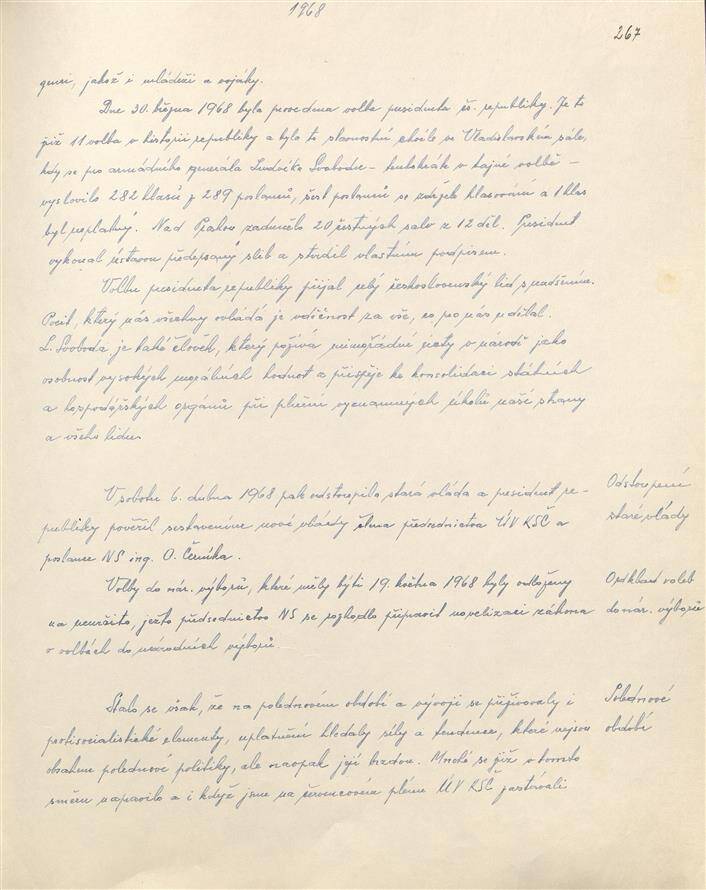 1968
267
genci, jakož i mládeži a vojáky.
Dne 30. března 1968 byla provedena volba presidenta čs. republiky. Je to
již 11 volba v historii republiky a byla to slavnostní chvíle ve Vladislavském sále,
kdy se pro armádního generála Ludvíka Svobodu – tentokrát v tajné volbě –
vyslovilo 282 hlasů z 289 poslanců, šest poslanců se zdrželo hlasování a 1 hlas
byl neplatný. Nad Prahou zadunělo 20 čestných salv z 12 děl. President
vykonal ústavou předepsaný slib a stvrdil vlastním podpisem.
Volbu presidenta republiky přijal celý československý lid s nadšením.
Pocit, který nás všechny ovládá je vděčnost za vše, co pro nás udělal.
L. Svoboda je také člověk, který požívá mimořádné úcty v národě jako
osobnost vysokých morálních hodnot a přispěje ke konsolidaci státních
a hospodářských orgánů při plnění významných úkolů naší strany
a všeho lidu.
V sobotu 6. dubna 1968 pak odstoupila stará vláda a president re-
publiky pověřil sestavením nové vlády člena předsednictva ÚV KSČ a
poslance NS ing. O. Černíka.
Odstoupení
staré vlády
Volby do nár. výborů, které měly býti 19. května 1968 byly odloženy
na neurčito, ježto předsednictvo NS se rozhodlo připravit novelizaci zákona
o volbách do národních výborů.
Odklad voleb
do nár. výborů
Stalo se však, že na polednovém období a vývoji se přiživovaly i
protisocialistické elementy, uplatnění hledaly síly a tendence, které nejsou
obsahem polednové politiky, ale naopak její brzdou. Mnohé se již v tomto
směru napravilo a i když jsme na červencovém plénu ÚV KSČ zastávali
Polednové
období